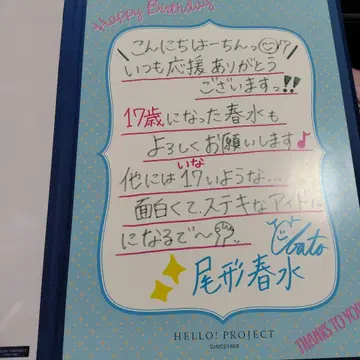 Happy Birthday
こんにちはーちんっ!?
いつも応援ありがとう
ございますっ!!
17歳になった春水も
よろしくお願いします♪
他には17(いな)いような...
面白くて、ステキなアイドル
になるで〜
尾形春水
HELLO! PROJECT
SINCE1998
THANKS TO YOU